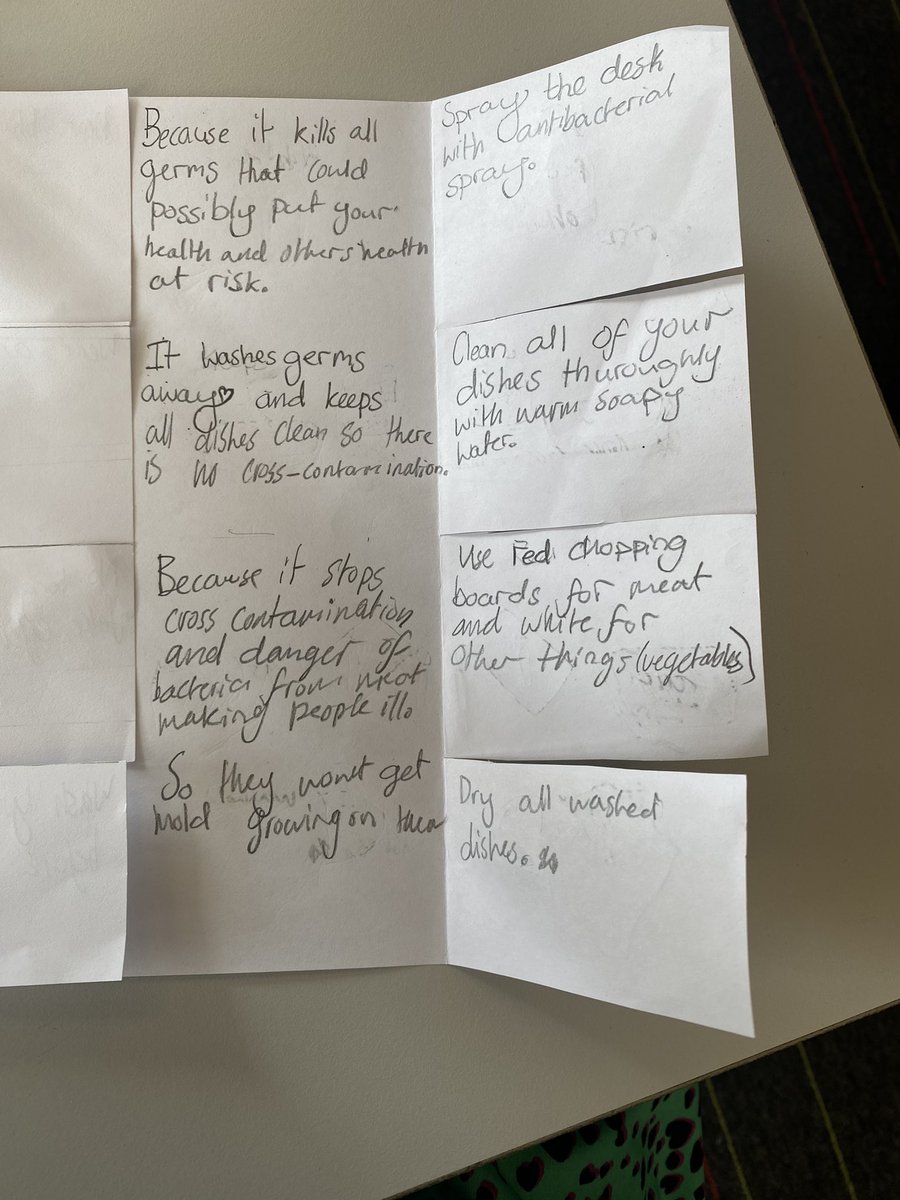 Because it kills all
germs that could
possibly put your
health and others health
at risk.
It washes germs
away and keeps
all dishes clean so there
is no cross-contamination.
Because it stops
cross contamination
and danger of
bacteria from meat
making people ill.
So they wont get
mold growing on them
Spray the desk
with antibacterial
spray.
Clean all of your
dishes thuroughly
with warm soapy
water.
Use red chopping
boards for meat
and white for
other things (vegetables)
Dry all washed
dishes.